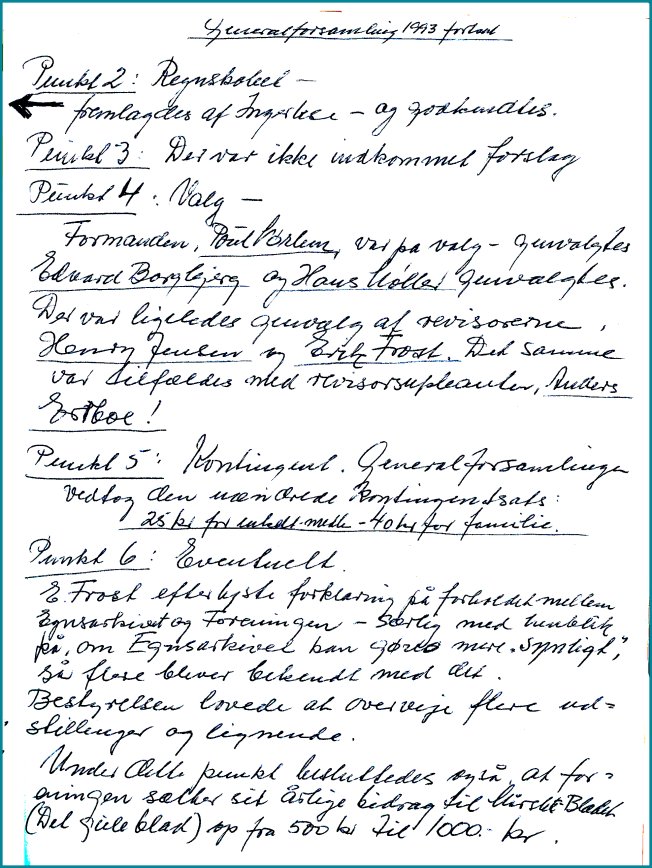 Generalforsamling 1993 fortsat
Punkt 2: Regnskabet –
fremlagdes af Ingerlise – og godkendtes.
Punkt 3: Der var ikke indkommet forslag
Punkt 4: Valg –
Formanden, Poul, var på valg – genvalgtes
Edvard Borgbjerg og Hans Møller genvalgtes.
Der var ligeledes genvalg af revisorerne,
Henry Jensen og Erik Frost. Det samme
var tilfældes med revisorsupleanten, Anders
Estboe!
Punkt 5: Kontingent. Generalforsamlingen
vedtog den uændrede kontingentsats:
25 kr for enkelt medle – 40 kr for familie.
Punkt 6: Eventuelt.
E. Frost efterlyste forklaring på forholdet mellem
Egnsarkivet og Foreningen – særlig med henblik
på, om Egnsarkivet kan gøres mere "synligt",
så flere bliver bekendt med det.
Bestyrelsen lovede at overveje flere ud=
stillinger og lignende.
Under dette punkt besluttedes også, at for-
eningen sætter sit årlige bidrag til Bladet
(Det gule blad) op fra 500 kr til 1000.- kr.